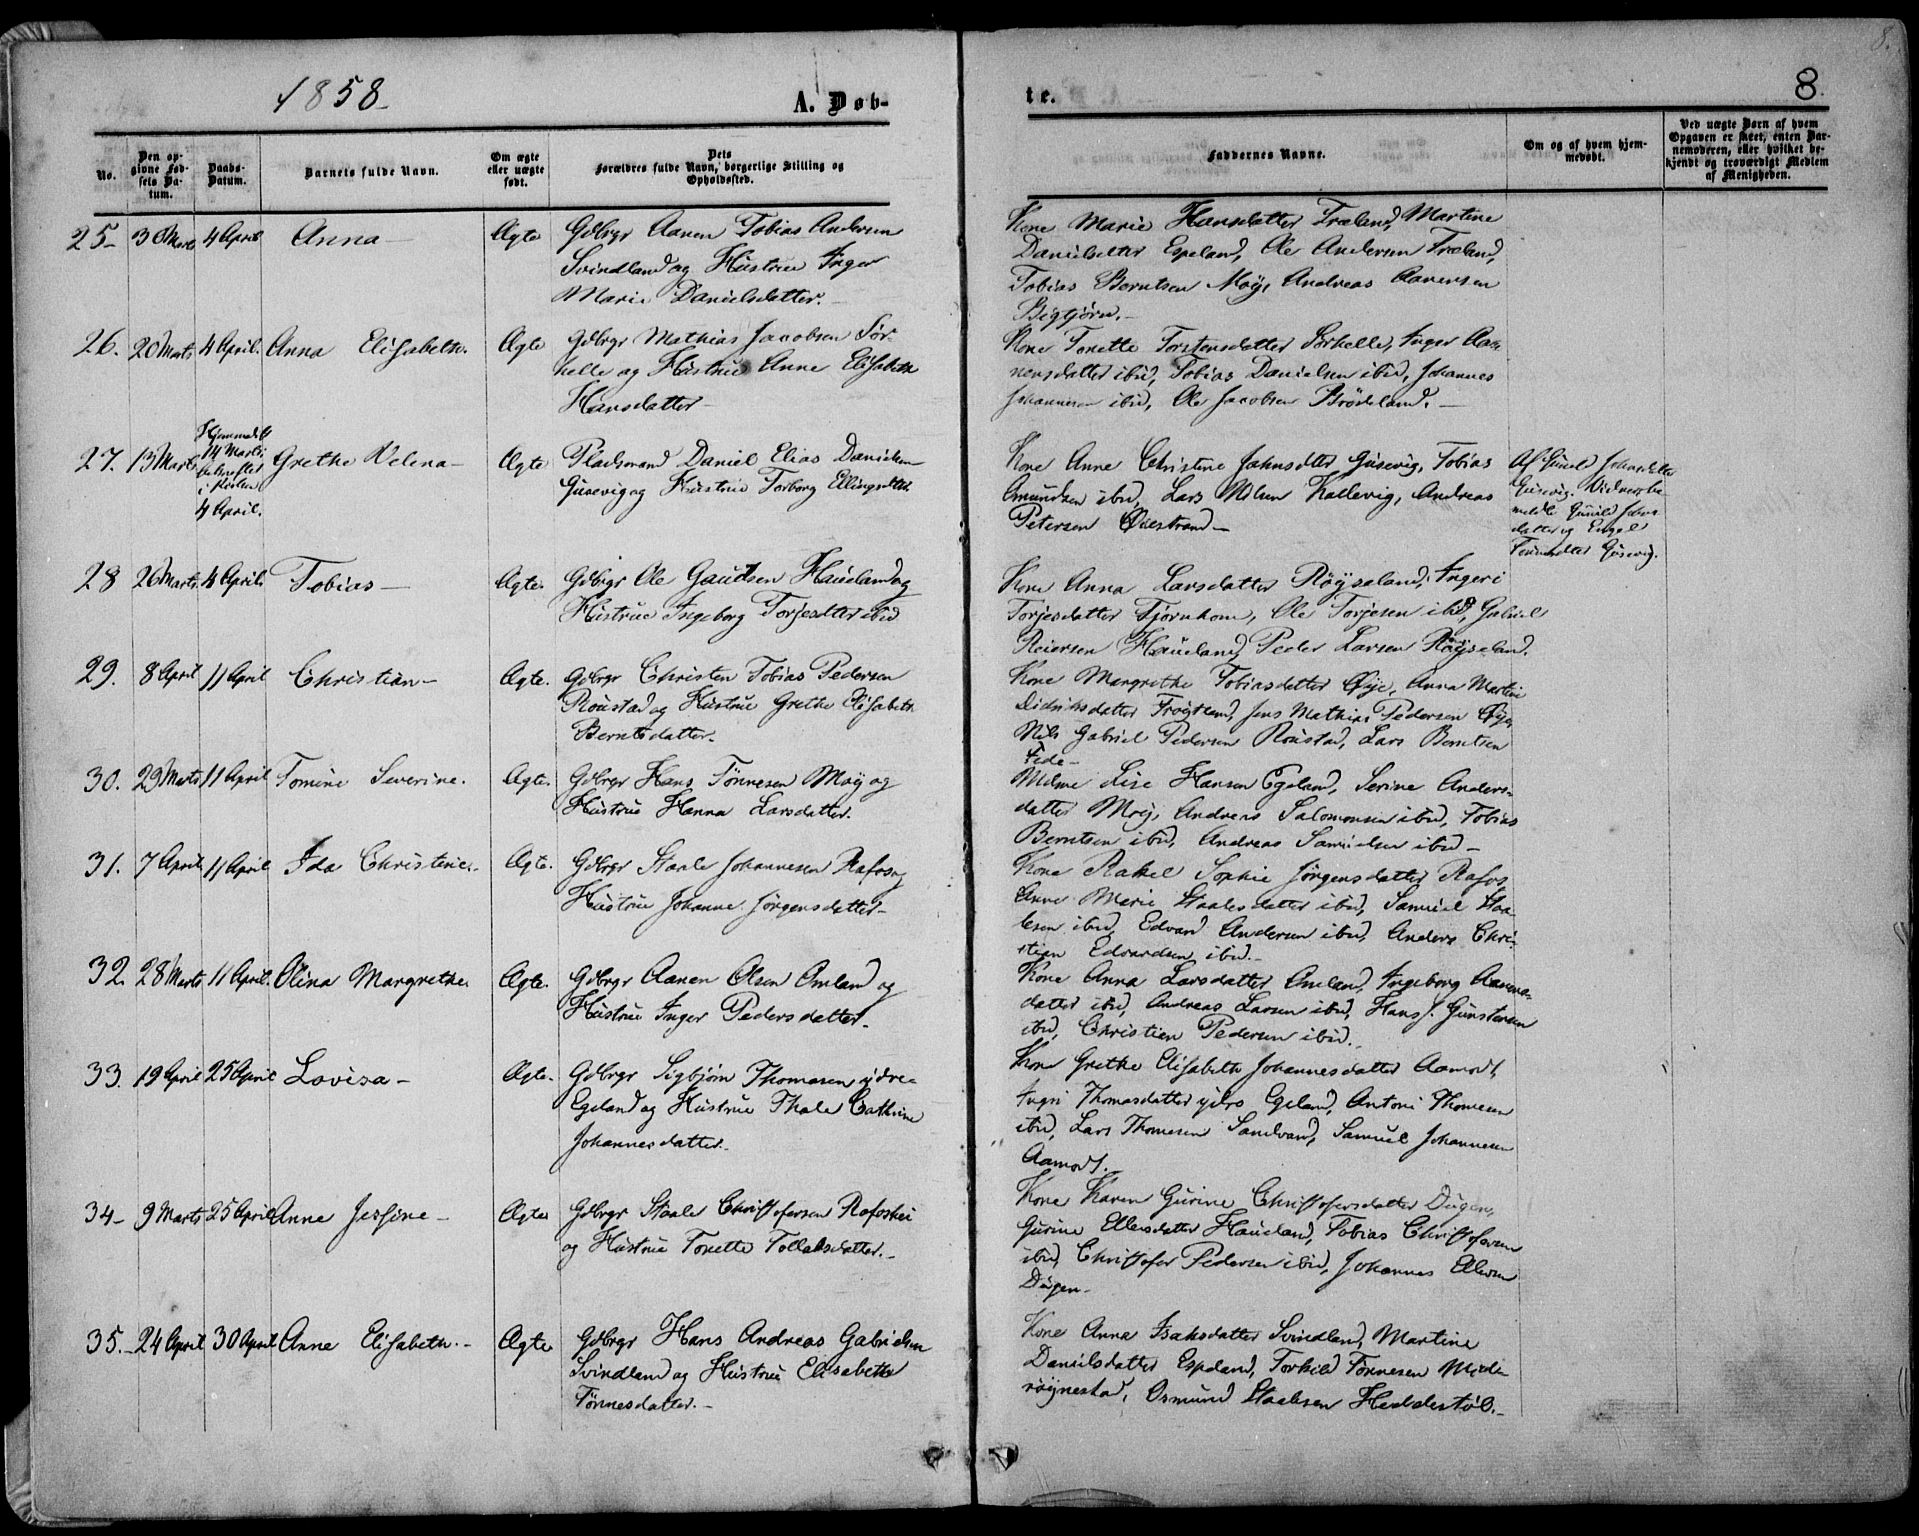 8.
1858
A. Døb-
te.
8.
No.
Den op-
givne Fød-
sels Da-
tum.
Daabs-
Datum.
Barnets fulde Navn.
Om ægte
eller uægte
født.
Dets
Forældres fulde Navn, borgerlige Stilling og
Opholdssted.
Faddernes Navne.
Om og af hvem hjem-
medøbt.
Ved uægte Børn af hvem
Opgaven er skeet, enten Bar-
nemoderen, eller hvilket be-
kjendt og troværdigt Medlem
af Menigheden.
25- 30 Marts 4 April Anna- Ægte Gdbrgr Aanen Tobias Andersen
Svindland og Hustrue Inger
Marie Danielsdatter.-
Kone Marie Hansdatter Træland, Martine
Danielsdatter Espeland, Ole Andersen Træland,
Tobias Berntsen Moy, Andreas Aanensen
Bigtjörn.-
26. 20 Marts 4 April. Anna Elisabeth. Ægte Gdbrgr Mathias Jacobsen Sör-
helle og Hustrue Anne Elisabeth
Hansdatter-
Kone Tonette Torstensdatter Sörhelle, Inger Aa-
nensdatter ibid, Tobias Danielsen ibid, Johannes
Johannesen ibid, Ole Jacobsen Brödeland.-
27. 13 Marts Hjemmedöbt
14 Marts
bekræftet
i Kirken
4 April.
Grethe Velena- Ægte Pladsmand Daniel Elias Danielsen
Gusevig og Hustrue Torborg Ellingsdtter
Kone Anne Christine Jahnsdtter Gusevig, Tobias
Amundsen ibid, Lars Olsen Kallevig, Andreas
Petersen Öiestrand-
Af Gunild Johnsdatter
Gusevig. Vidner
Gunild Johns
datter og Engel
Gusevig.
28 26 Marts 4 April. Tobias- Ægte. Gdbrgr Ole Gautsen Haueland og
Hustrue Ingeborg Torjesdtter ibid
Kone Anna Larsdatter Röyseland, Ingeri
Torjesdatter Tjörnhom, Ole Torjesen ibid, Gabriel
Reiersen Haueland, Peder Larsen Röyseland.
29. 8 April 11 April Christian- Ægte. Gdbrgr Christen Tobias Pedersen
Roustad og Hustrue Grethe Elisabeth
Berntsdatter.
Kone Margrethe Tobiasdatter Öye, Anna Martine
Didriksdatter Fröitland, Jens Mathias Pedersen Öye,
Nils Gabriel Pedersen Roustad, Lars Berntsen
Fede-
30. 29 Marts 11 April Tomine Severine. Ægte. Gdbrgr Hans Tönnesen Moy og
Hustrue Hanna Larsdatter.
Lise Hansen Egeland, Serine Anders-
datter Moy, Andreas Salomonsen ibid, Tobias
Berntsen ibid, Andreas Samuelsen ibid-
31. 7 April 11 April Ida Christine. Ægte. Gdbrgr Staale Johannesen Rafos og
Hustrue Johanne Jörgensdatter-
Kone Rakel Sophie Jörgensdatter Rafos
Anne Marie Staalesdatter ibid, Samuel Staa-
lesen ibid, Edvard Andersen ibid, Anders Chri-
stian Edvardsen ibid.-
32. 28 Marts 11 April. Olina Margrethe. Ægte. Gdbrgr Aanen Olsen Omland og
Hustrue Inger Pedersdatter.
Kone Anna Larsdatter Omland, Ingeborg Aanens-
datter ibid, Andreas Larsen ibid, Hans J. Gunstensen
ibid, Christian Pedersen ibid.
33. 19 April 25 April Lovisa- Ægte. Gdbrgr Sigbjörn Thomasen ydre-
Egeland og Hustrue Thale Cathrine
Johannesdatter.
Kone Grethe Elisabeth Johannesdatter Aamodt,
Ingri Thomasdatter ydre Egeland, Antoni Thomesen
ibid, Lars Thomesen Sandvand, Samuel Johannesen
Aamodt.
34- 9 Marts 25 April Anne Jessine- Ægte Gdbrgr Staale Christofersen Rafoshei
og Hustrue Tonette Tollaksdatter.-
Kone Karen Gurine Christofersdatter Dugen,
Gurine Ellevsdatter Haueland, Tobias Christofersen
ibid, Christofer Pedersen ibid, Johannes Ellevsen
Dugen-
35.- 24 April 30 April Anne Elisabeth.- Ægte Gdbrgr Hans Andreas Gabrielsen
Svindland og Hustrue Elisabeth
Tönnesdatter.-
Kone Anna Isaksdatter Svindland, Martine
Danielsdatter Espeland, Torkild Tönnesen Mid-
röynestad, Osmund Staalesen Heddestöl.-